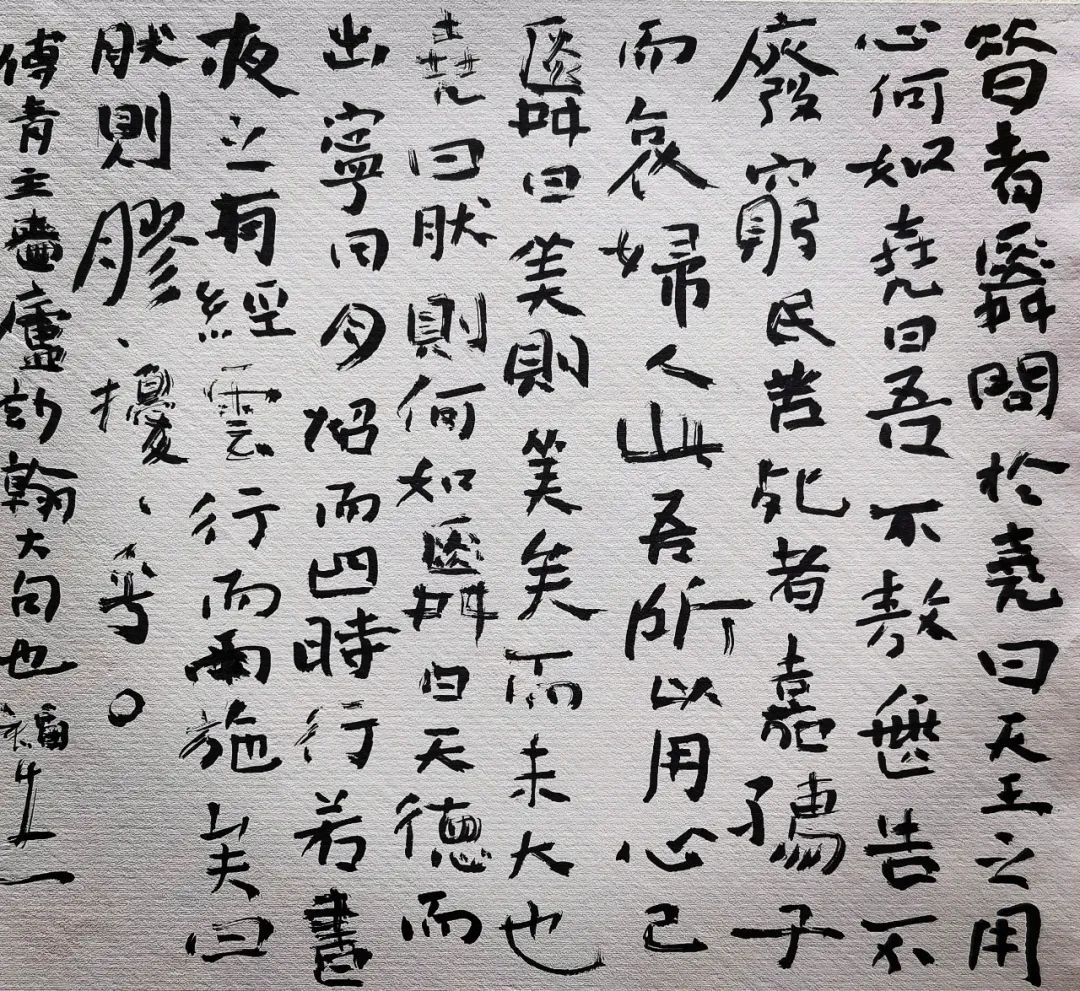 昔者舜問於堯曰天王之用
心何如堯曰吾不敖無告不
廢窮民苦死者嘉孺子
而哀婦人此吾所以用心已
舜曰美則美矣而未大也
堯曰然則何如舜曰天德而
出寧日月照而四時行若晝
夜之有經雲行而雨施矣曰
然則膠、擾、乎。
傅青主嗇廬玅翰大句也 福生